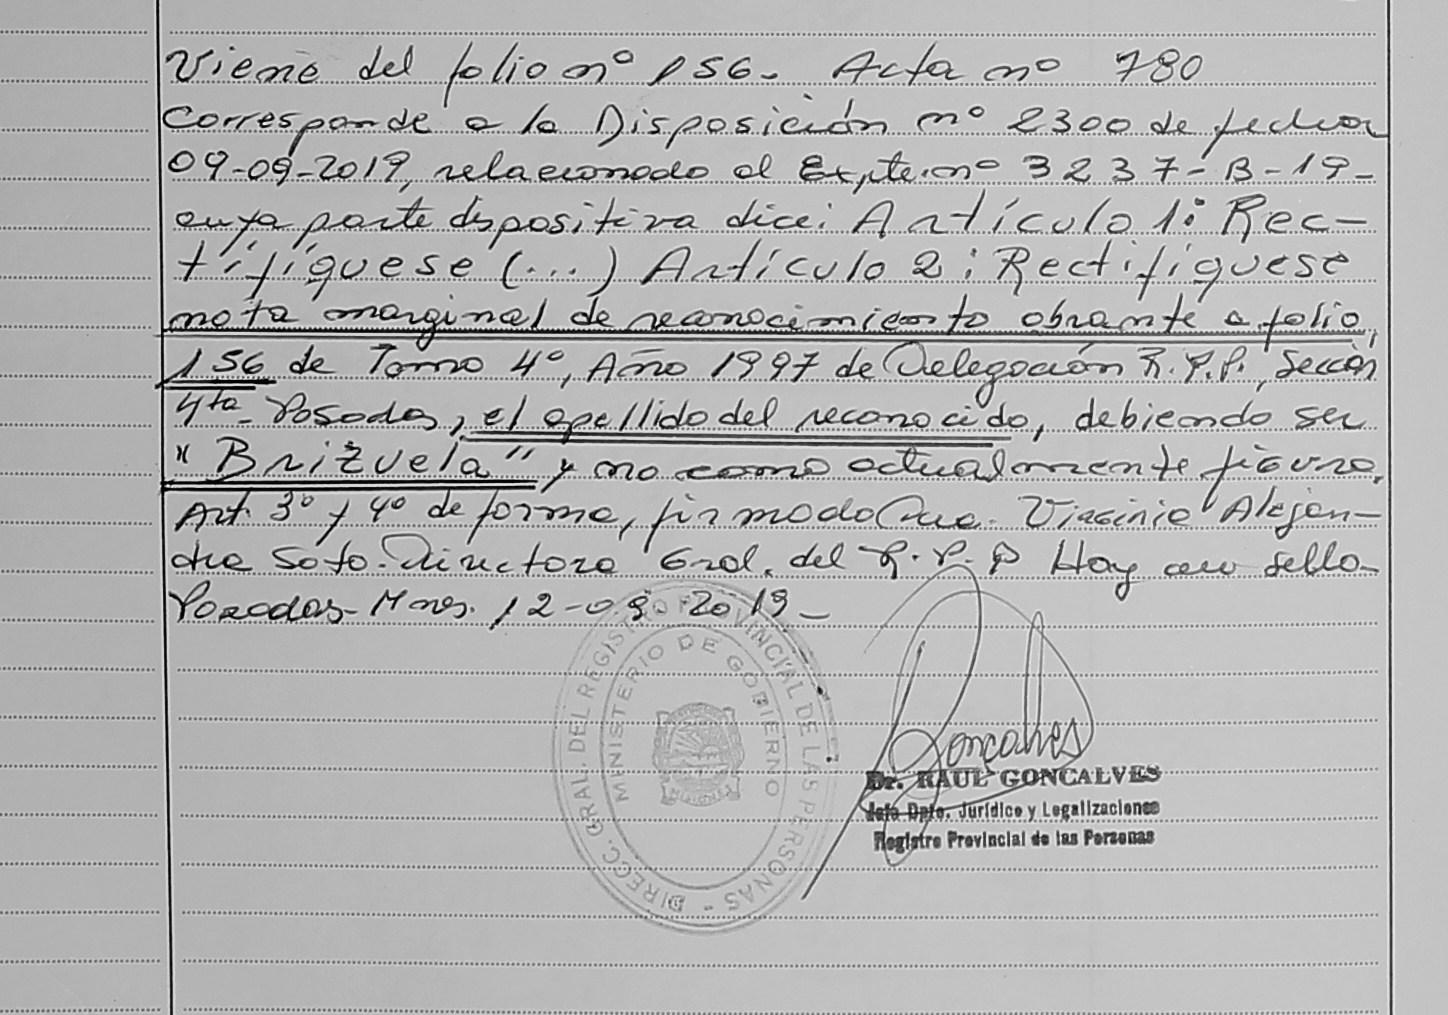 Viene del folio nº 156. Acta nº 780
Corresponde a la Disposición nº 2300 de fecha
09-09-2019, relacionado al Expte. nº 3237-B-19-
cuya parte dispositiva dice: Artículo 1: Rec-
tifíquese (...) Artículo 2: Rectifíquese
nota marginal de reconocimiento obrante a folio,
156 de Tomo 4º, Año 1997 de Delegación R.P.P., Sección
4ta- Posadas, el apellido del reconocido, debiendo ser
"Brizuela" y no como actualmente figura.
Art. 3º y 4º de forma, firmado Dra. Virginia Alejan-
dra Soto-Directora Gral. del R.P.P Hay un sello-
Posadas-Mnes. 12-09-2019-
DIRECC. GRAL. DEL REGISTRO PROVINCIAL DE LAS PERSONAS -
MINISTERIO DE GOBIERNO
MISIONES
Goncalves
Dr. RAUL GONCALVES
Jefe Dpto. Jurídico y Legalizaciones
Registro Provincial de las Personas